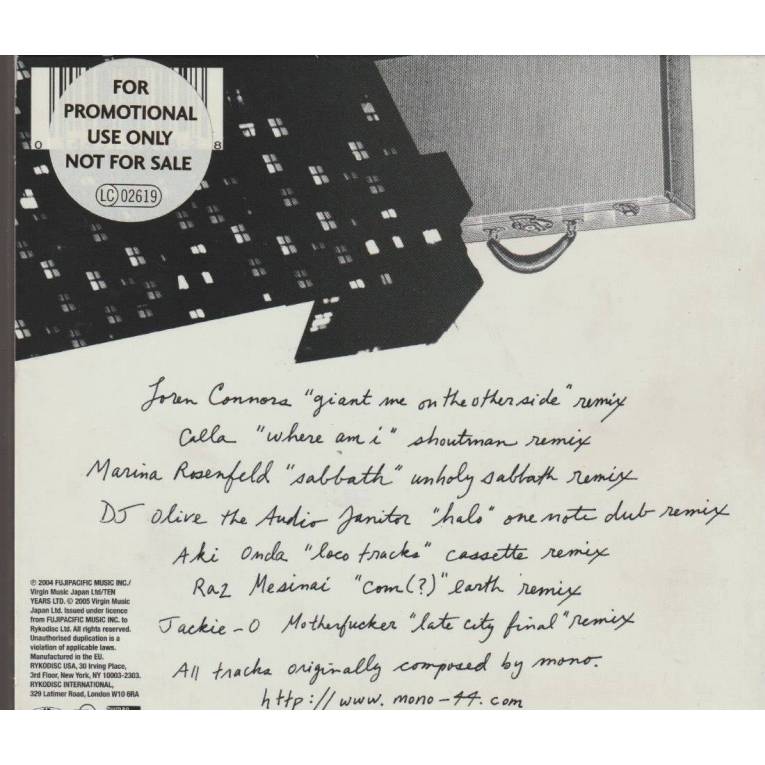 FOR
PROMOTIONAL
USE ONLY
NOT FOR SALE
LC 02619
0 8
Loren Connors "giant me on the other side" remix
Calla "where am i" shoutman remix
Marina Rosenfeld "sabbath" unholy sabbath remix
DJ Olive the Audio Janitor "halo" one note dub remix
Aki Onda "loco tracks" cassette remix
Raz Mesinai "com(?)" earth remix
Jackie-O Motherfucker "late city final" remix
All tracks originally composed by mono.
http://www.mono-44.com
℗ 2004 FUJIPACIFIC MUSIC INC./
Virgin Music Japan Ltd/TEN
YEARS LTD. © 2005 Virgin Music
Japan Ltd. Issued under licence
from FUJIPACIFIC MUSIC INC. to
Rykodisc Ltd. All rights reserved.
Unauthorised duplication is a
violation of applicable laws.
Manufactured in the EU.
RYKODISC USA, 30 Irving Place,
3rd Floor, New York, NY 10003-2303.
RYKODISC INTERNATIONAL,
329 Latimer Road, London W10 6RA